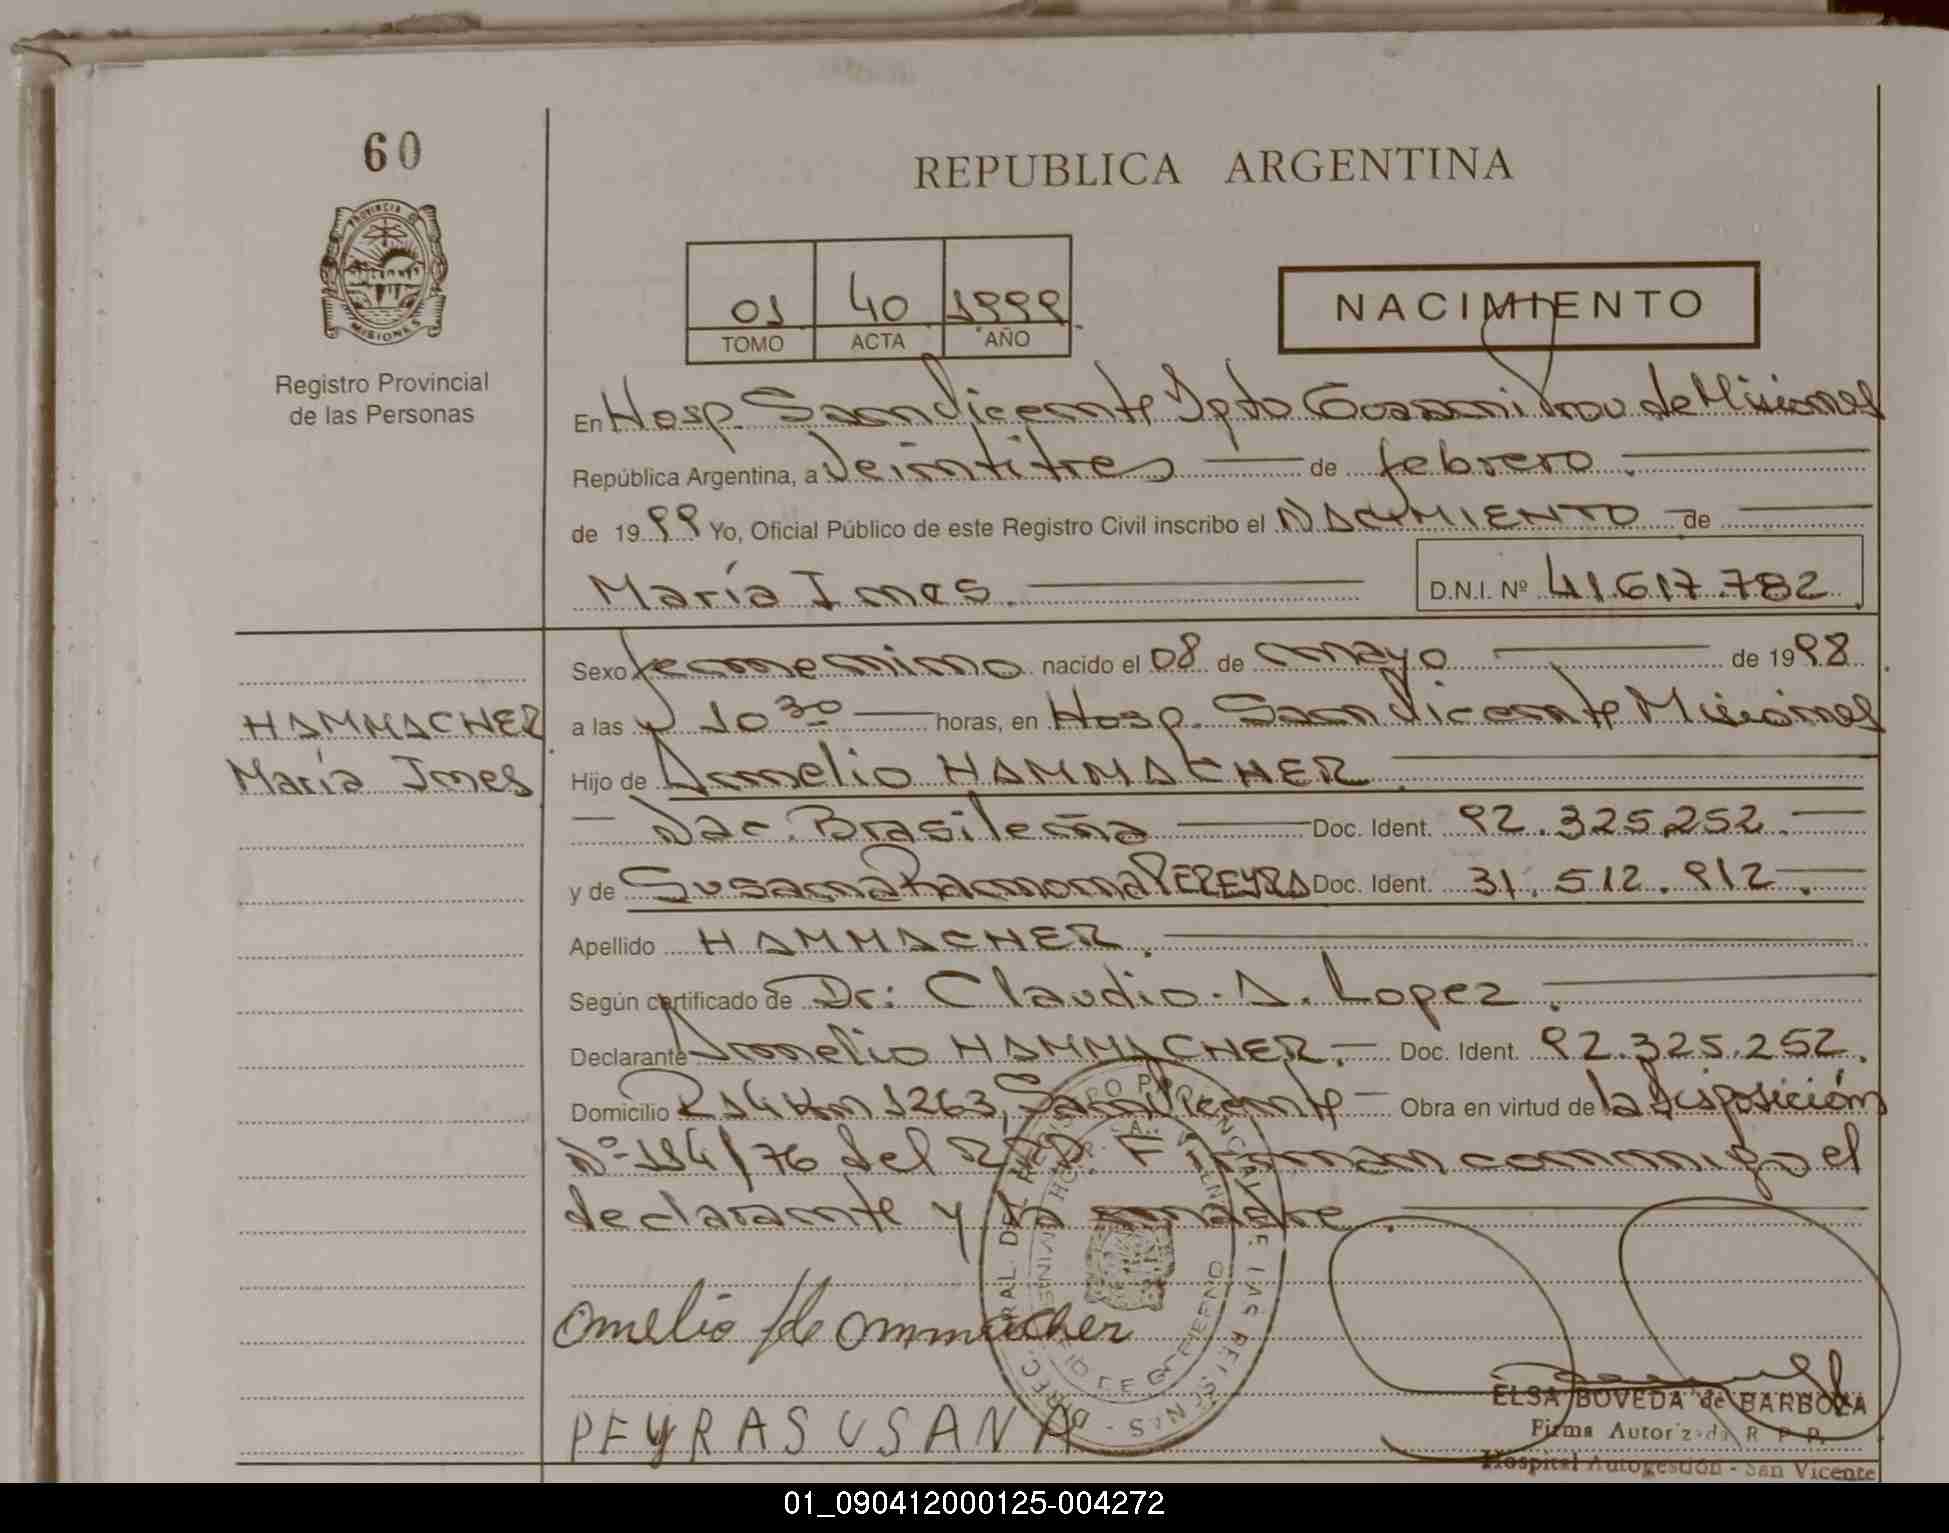 60
REPUBLICA ARGENTINA
PROVINCIA DE
MISIONES
Registro Provincial
de las Personas
01 40 1999
TOMO ACTA AÑO
NACIMIENTO
En Hosp. San Vicente Dpto Guarani Prov de Misiones
República Argentina, a Veintitres de febrero.
de 1999 Yo, Oficial Público de este Registro Civil inscribo el NACIMIENTO de
María Ines. D.N.I. Nº 41.617.782.
Sexo femenino nacido el 08 de mayo de 1998.
HAMMACHER
a las 10 30 horas, en Hosp. San Vicente Misiones
María Ines
Hijo de Arnelio HAMMACHER.
Nac. Brasileña Doc. Ident. 92.325.252.
y de Susana Ramona PEREYRA Doc. Ident. 31.512.912.
Apellido HAMMACHER.
Según certificado de Dr: Claudio. A. Lopez.
Declarante Arnelio HAMMACHER. Doc. Ident. 92.325.252.
Domicilio R14 Km 1263, San Vicente Obra en virtud de la disposición
Nº 114/76 del R.P.P. Firman conmigo el
declarante y la madre.
Omelio Hammacher
PEYRA SUSANA
ELSA BOVEDA de BARBOZA
Firma Autorizada R P P.
Hospital Autogestión - San Vicente
01_090412000125-004272